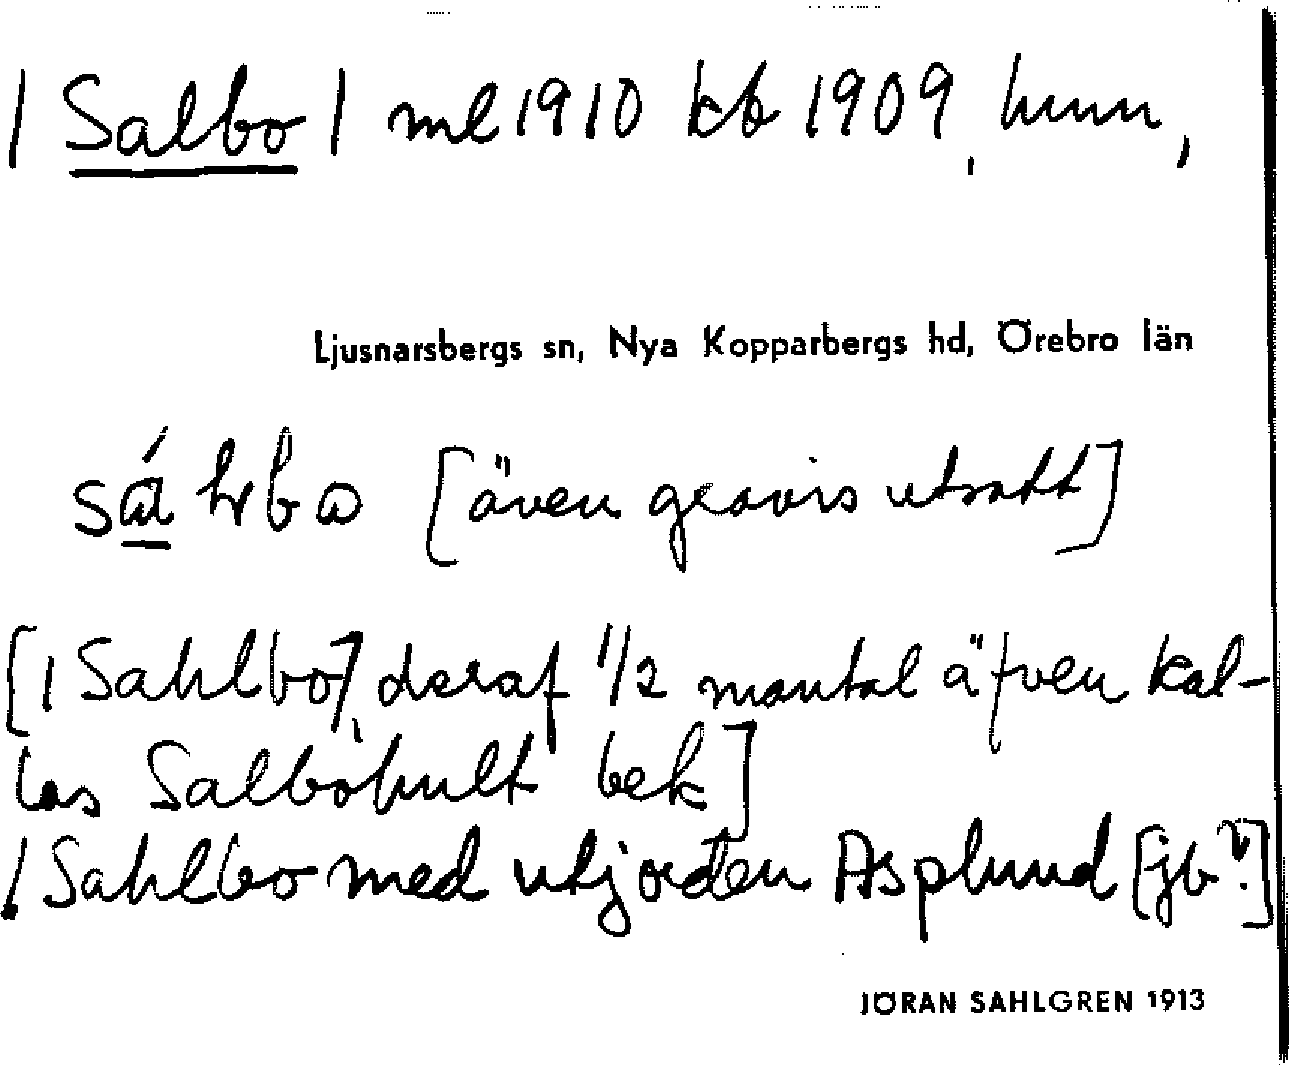 / Salbo / ml 1910 kb 1909, hmn,
Ljusnarsbergs sn, Nya Kopparbergs hd, Örebro län
[även gravis utsatt]
[/ Sahlbo], deraf 1/2 mantal äfven kal-
las Salbohult bek]
/ Sahlbo med utjorden Asplund [jb?]
JÖRAN SAHLGREN 1913